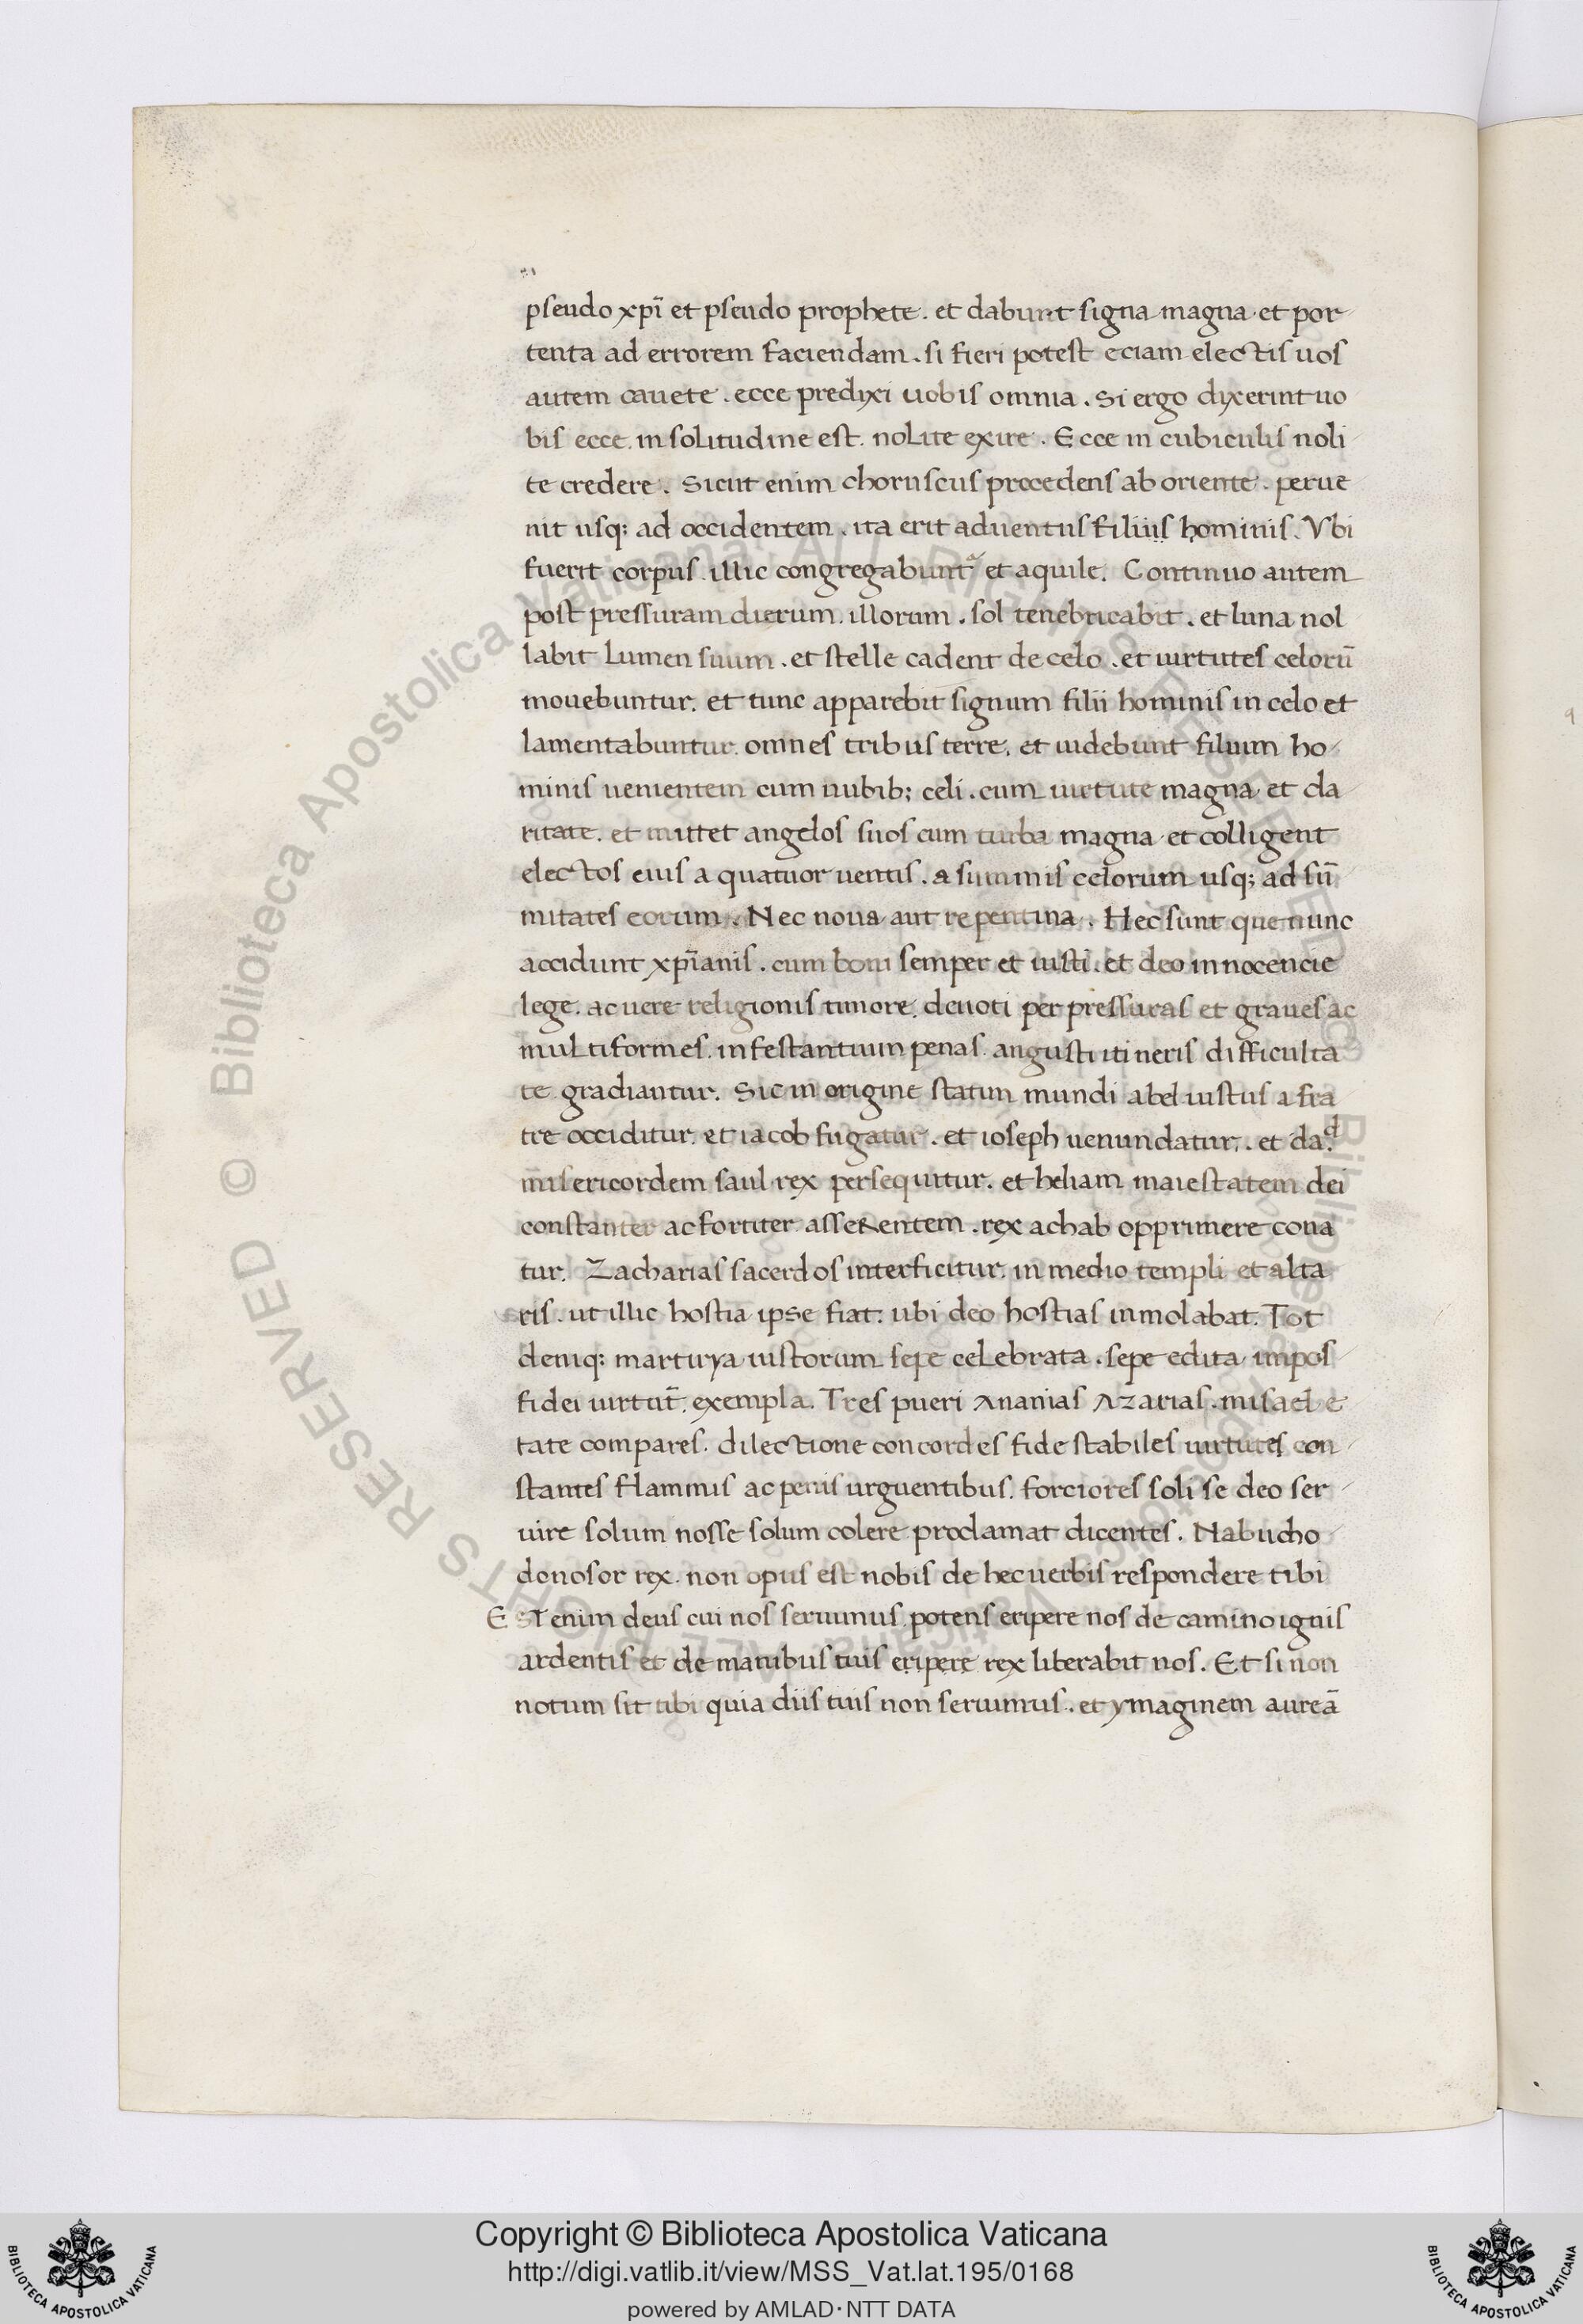 pseudo xpī et pseudo prophete . et dabunt signa magna et por
tenta ad errorem faciendam . si fieri potest eciam electis uos
autem cauete . ecce predixi uobis omnia . Si ergo dixerint uo
bis ecce . in solitudine est . nolite exire . Ecce in cubiculis noli
te credere . Sicut enim choruscus procedens ab oriente . perue
nit usq; ad occidentem . ita erit aduentus filiis hominis . Vbi
fuerit corpus . illic congregabunt et aquile . Continuo autem
post pressuram dierum . illorum . sol tenebricabit . et luna nol
labit lumen suum . et stelle cadent de celo . et uirtutes celorū
mouebuntur . et tunc apparebit signum filii hominis in celo et
lamentabuntur . omnes tribus terre . et uidebunt filium ho
minis uenientem cum nubib; celi . cum uirtute magna et cla
ritate . et mittet angelos suos cum turba magna et colligent
electos eius a quatuor uentis . a summis celorum usq; ad sū
mitates eorum . Nec noua aut repentina . Hec sunt que nunc
accidunt xpīanis . cum boni semper et iusti . et deo innocencie
lege . ac uere religionis timore . deuoti per pressuras et graues ac
multiformes . infestantium penas . angusti itineris difficulta
te gradiantur . Sic in origine statim mundi abel iustus a fra
tre occiditur . et iacob fugatur . et ioseph uenundatur . et da.d
misericordem saul rex persequitur . et heliam maiestatem dei
constanter ac fortiter asserentem . rex achab opprimere cona
tur . Zacharias sacerdos interficitur . in medio templi et alta
ris . ut illic hostia ipse fiat : ubi deo hostias inmolabat . Tot
deniq; martirya iustorum sepe celebrata . sepe edita impos
fidei uirtut̄ . exempla . Tres pueri Ananias Azarias . misael e
tate compares . dilectione concordes fide stabiles uirtutes con
stantes flammis ac penis urguentibus . forciores soli se deo ser
uire solum nosse solum colere proclamat dicentes . Nabucho
donosor rex . non opus est nobis de hec uerbis respondere tibi
EST enim deus cui nos seruimus . potens eripere nos de camino ignis
ardentis et de manibus tuis eripere rex liberabit nos . Et si non
notum sit tibi quia diis tuis non seruimus . et ymaginem aureā
© Biblioteca Apostolica Vaticana. ALL RIGHTS RESERVED © Biblioteca Apostolica Vaticana. ALL RIGHTS RESERVED
Copyright © Biblioteca Apostolica Vaticana
http://digi.vatlib.it/view/MSS_Vat.lat.195/0168
powered by AMLAD·NTT DATA
BIBLIOTECA APOSTOLICA VATICANA
BIBLIOTECA APOSTOLICA VATICANA